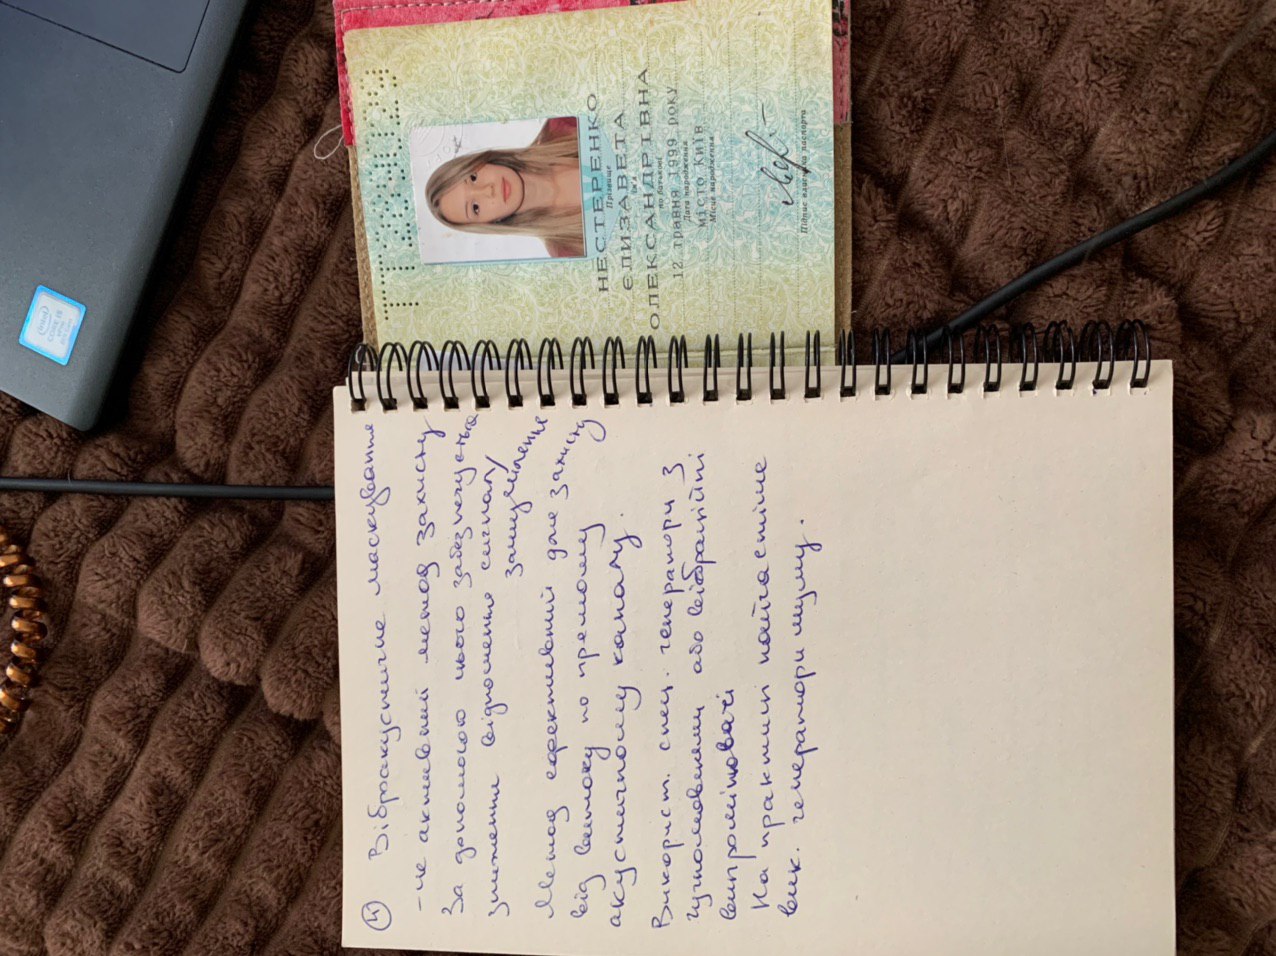 НЕСТЕРЕНКО
Прізвище
ЄЛИЗАВЕТА
Ім'я
ОЛЕКСАНДРІВНА
по батькові
12 травня 1999 року
Дата народження
місто Київ
Місце народження
Підпис власника паспорта
intel
CORE i5
④ Віброакустичне маскування
- це активний метод захисту
За допомогою нього забезпечується
зниження відношення сигнал/
Метод ефективний для захисту
від витоку по прямому
акустичному каналу.
Використ. спец. генератори з
гучномовцями або вібраційні
випромінювачі
На практиці найчастіше
вик. генератори шуму.